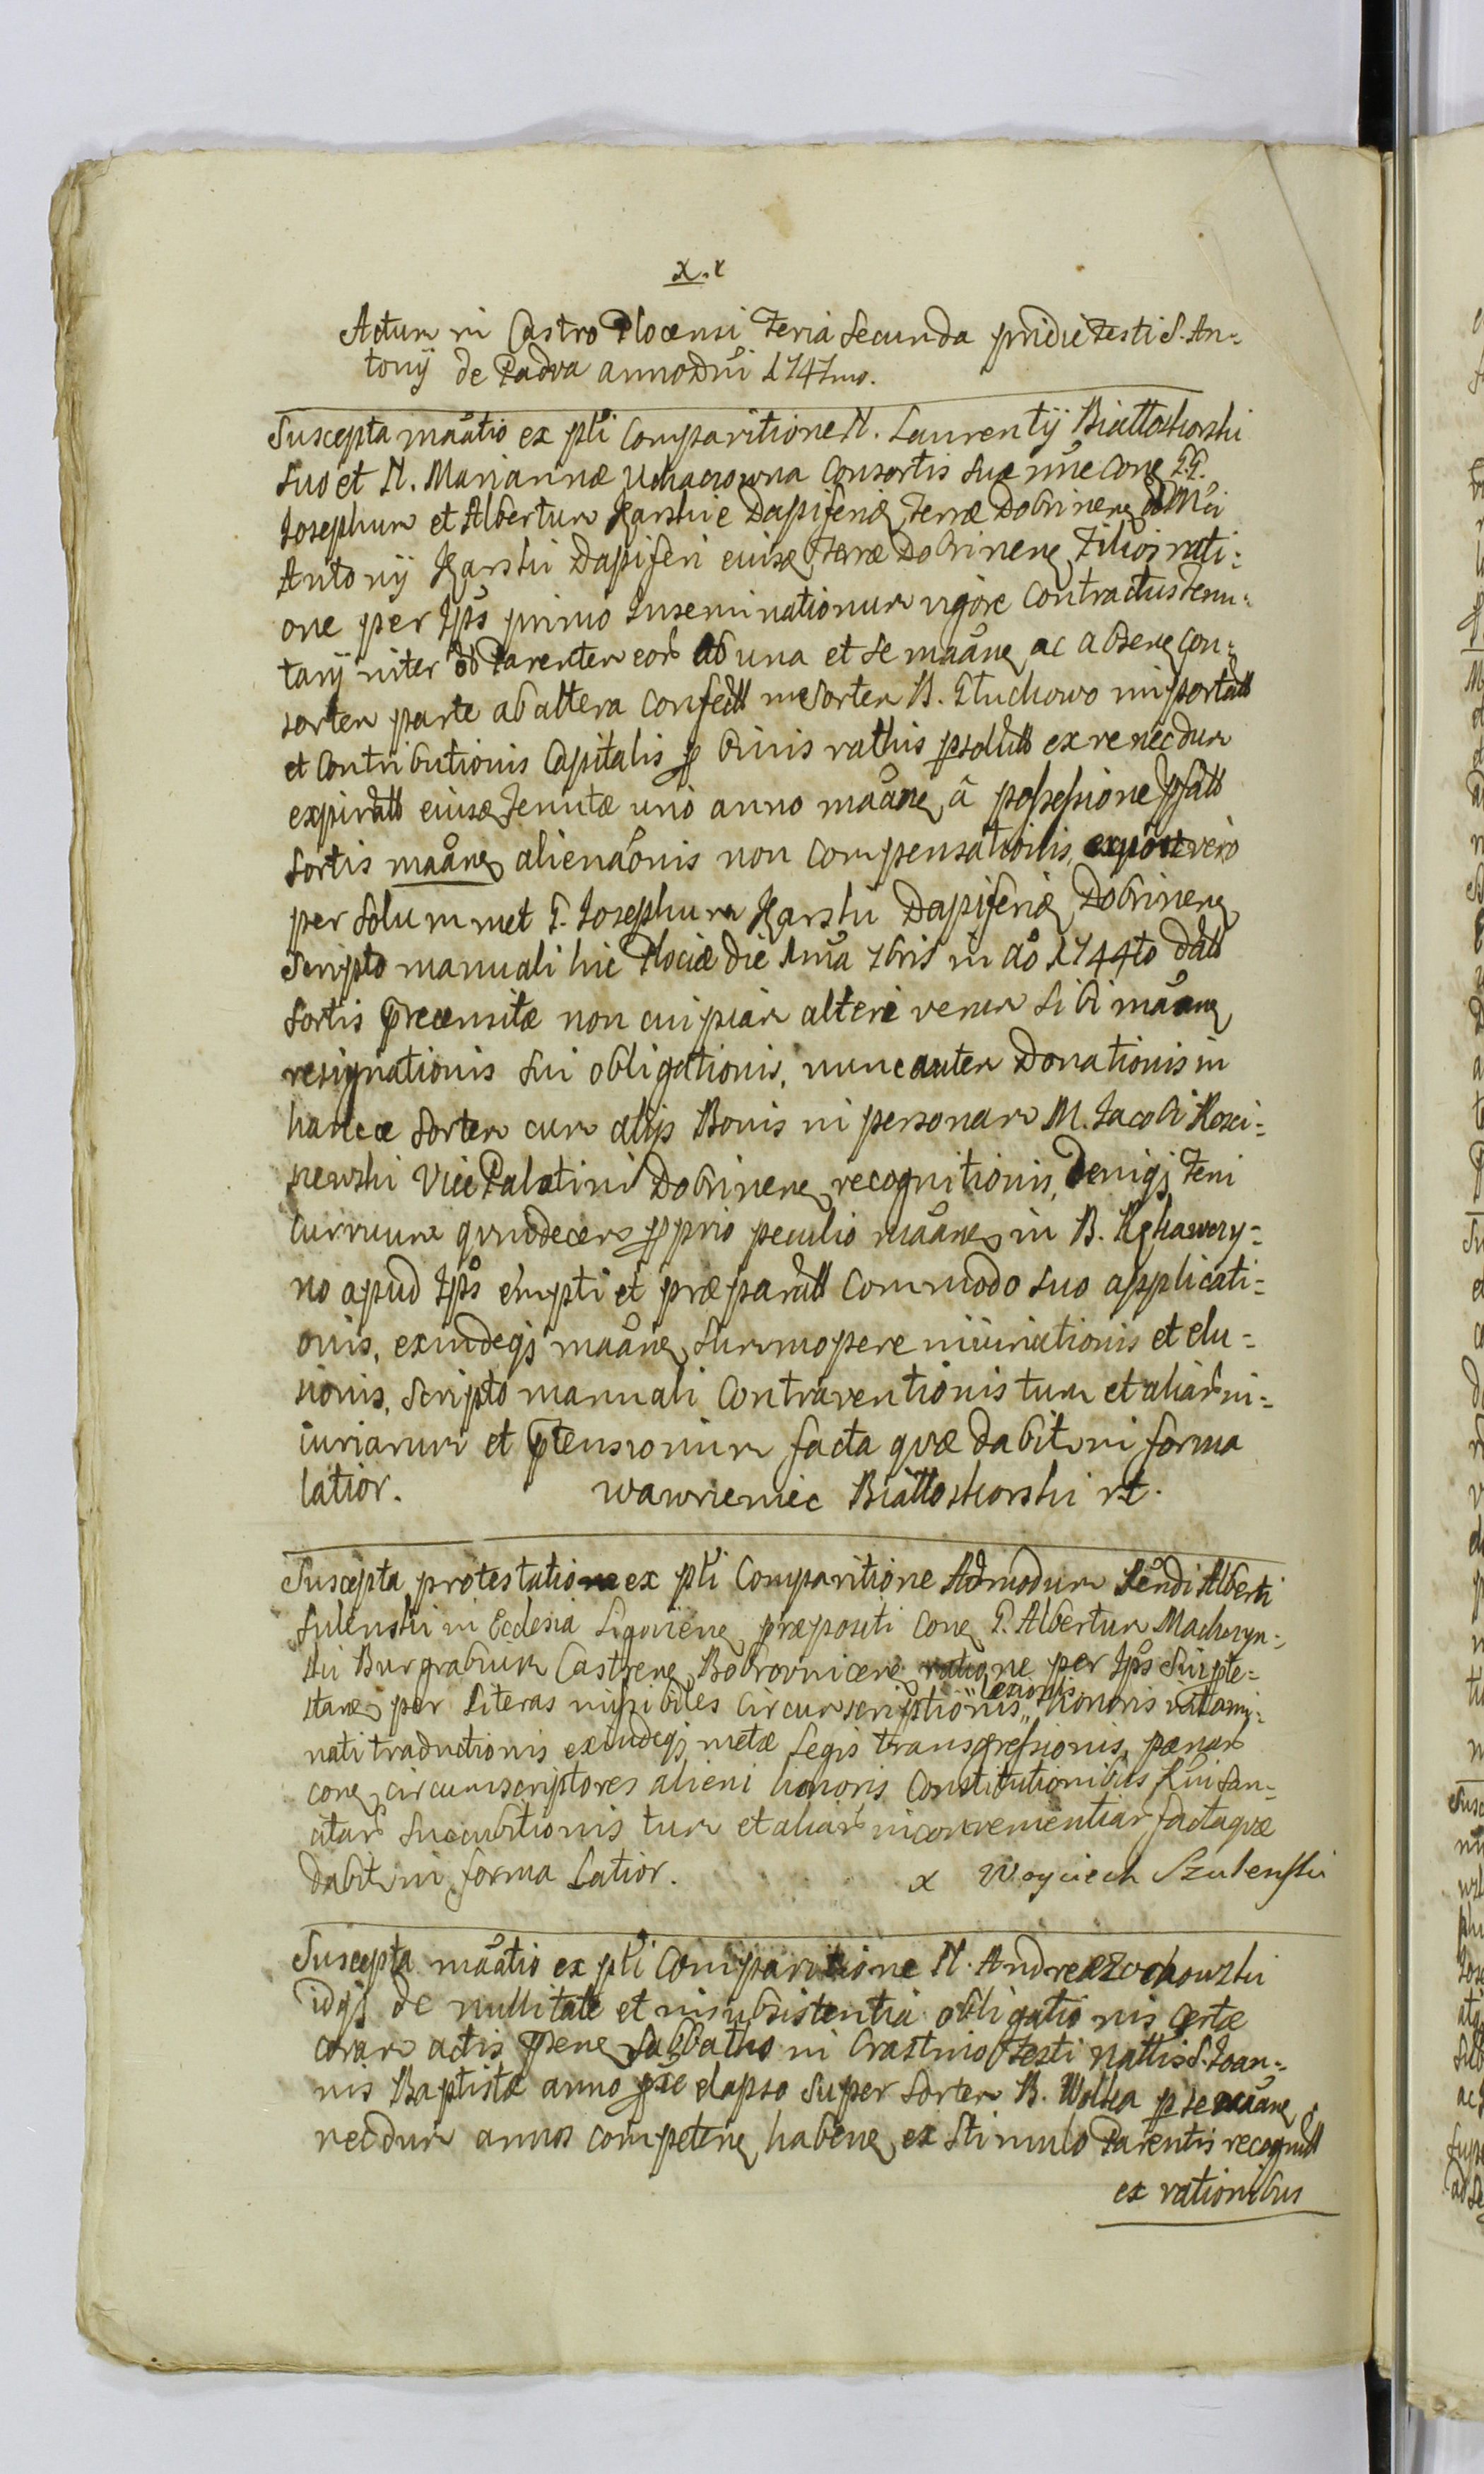 x.x
Actum in Castro Plocensi Feria Secunda pridie Festi S. An=
tonij de Padva anno Dni 1747mo.
Suscepta maatio ex pti Comparitione N. Laurentij Biattoskorski
suo et N. Mariannæ Consortis suæ nne cone G.G.
Josephum et Albertum Karskie Dapiferid Terræ Dobrinen
Antonij Karski Dapiferi eiusd Terræ Dobrinen Filios rati=
one per Ips primo Inseminationum vigore Contractus Tenu=
tarij inter Parentem eor ab una et se maane ac absene con=
sortem parte ab altera confectt in Sortem B. Gluchowo importatt
et Contributionis Capitalis p binis rathis psolutt ex re necdum
expiratt eiusd Tenutæ uno anno maane â possessione
sortis maane alienaonis non compensationis, expost vero
per solummet G. Josephum Karski Dapiferid Dobrinen
Scripto manuali hic Plociæ die 1ma 7bris in ao 1744to datt
sortis precensitæ non cuipiam alteri verum sibi maane
resignationis sui obligationis, nunc autem Donationis in
hancce Sortem cum alijs Bonis in personam M. Jacobi Rosci=
szewski Vice Palatini Dobrinen recognitionis, deniqz Feni
curruum qvindecem pprio peculio maane in B.
no apud Ips empti et præparatt commodo suo applicati=
onis, exindeqz maane summopere iniuriationis et elu=
sionis, Scripto manuali Contraventionis tum et aliar in=
iuriarum et ptensionum facta qvæ dabit in forma
latior. wawrieniec Biattoskorski rt.
Suscepta protestatio ex pti Comparitione Admodum Rendi Alberti
Sulenski in Ecclesia Ligovien præpositi cone G. Albertum Machczyn=
ski Burgrabium Castren Bobrovnicen ratione per Ips Sui pte=
stane per Literas missibiles Circumscriptionis „ Lesionis „ honoris
nati traductionis exindeqz metæ Legis transgressionis, pænar
cone circumscriptores alieni honoris Constitutionibus Rni san=
citar Succubitionis tum et aliar inconvenientiar facta qvæ
dabit in forma Latior. x Woyciech Szulenski
Suscepta maatio ex pti Comparitione N. Andreæ Zochowski
idqz de nullitate et insubsistentia obligationis certæ
coram actis pene Sabbatho in Crastino Festi Nattis S. Joan=
nis Baptistæ anno pxe elapso super Sortem B. Wolka p se maane
necdum annos competene habene ex Stimulo Parentis recognitt
ex rationibus